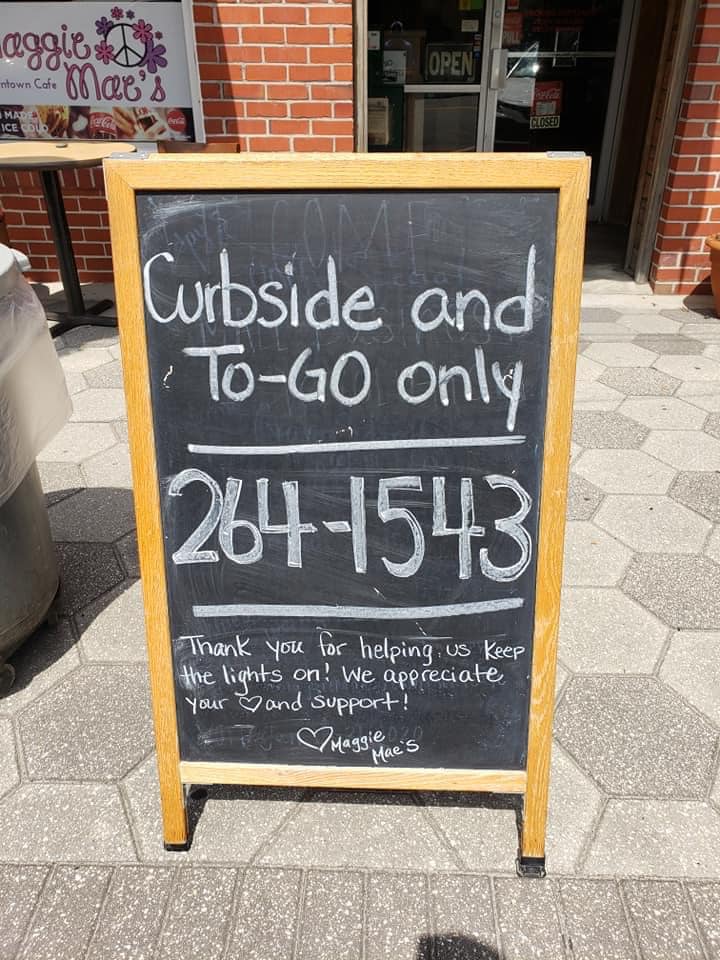 aggie
ntown Cafe
Mae's
MADE
ICE COLD
Coca-Cola
Coca-Cola
OPEN
PULL
Coca-Cola
CLOSED
Curbside and
To-GO only
264-1543
Thank you for helping us keep
the lights on! We appreciate
your ♡ and support!
♡ Maggie
Mae's